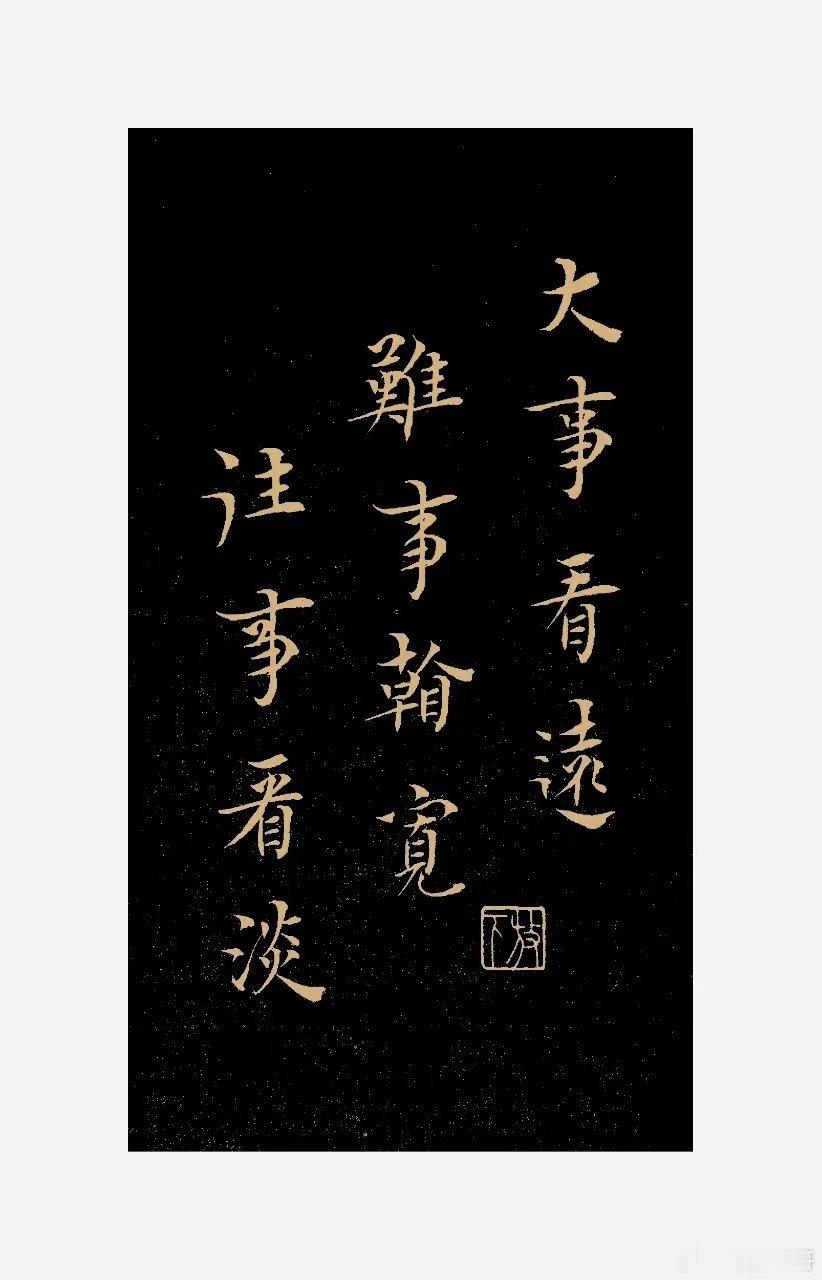 大事看遠
難事看寬
往事看淡
放下